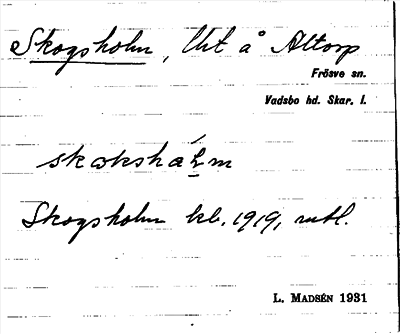 Skogsholm, lht å Altorp
Frösve sn.
Vadsbo hd. Skar. l.
skɷkshàl̥m
Skogsholm kb. 1919, mtl.
L. MADSÉN 1931